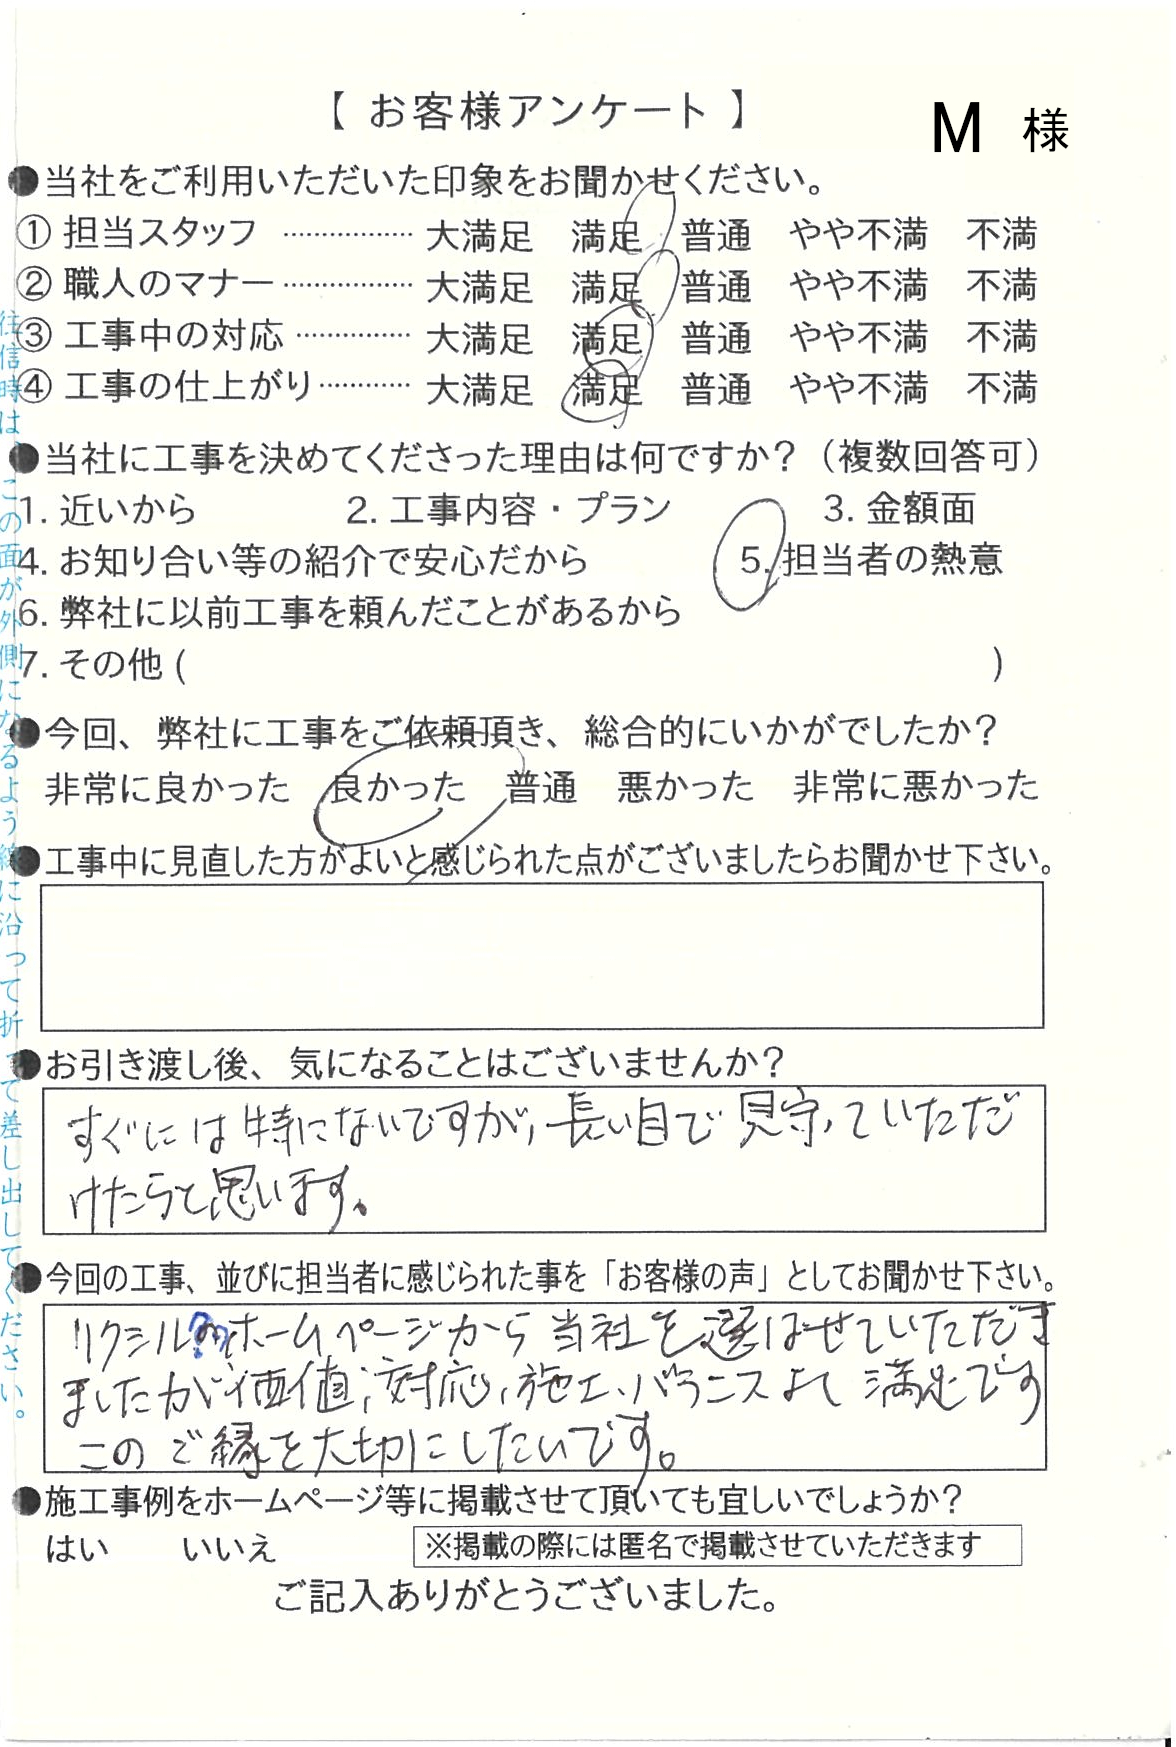 【 お客様アンケート 】
M 様
●当社をご利用いただいた印象をお聞かせください。
① 担当スタッフ ……………… 大満足 満足 普通 やや不満 不満
② 職人のマナー ……………… 大満足 満足 普通 やや不満 不満
③ 工事中の対応 …………… 大満足 満足 普通 やや不満 不満
④ 工事の仕上がり ………… 大満足 満足 普通 やや不満 不満
●当社に工事を決めてくださった理由は何ですか?（複数回答可）
1. 近いから 2. 工事内容・プラン 3. 金額面
4. お知り合い等の紹介で安心だから 5. 担当者の熱意
6. 弊社に以前工事を頼んだことがあるから
7. その他 ( )
●今回、弊社に工事をご依頼頂き、総合的にいかがでしたか?
非常に良かった 良かった 普通 悪かった 非常に悪かった
●工事中に見直した方がよいと感じられた点がございましたらお聞かせ下さい。
●お引き渡し後、気になることはございませんか?
すぐには特にないですが、長い目で見守っていただ
けたらと思います。
●今回の工事、並びに担当者に感じられた事を「お客様の声」としてお聞かせ下さい。
リクシル ホームページから当社を選ばせていただき
ましたが、価値、対応、施工、バランスよく満足です
このご縁を大切にしたいです。
●施工事例をホームページ等に掲載させて頂いても宜しいでしょうか?
はい いいえ ※掲載の際には匿名で掲載させていただきます
ご記入ありがとうございました。
往信時は、この面が外側になるよう線に沿って折って差し出してください。